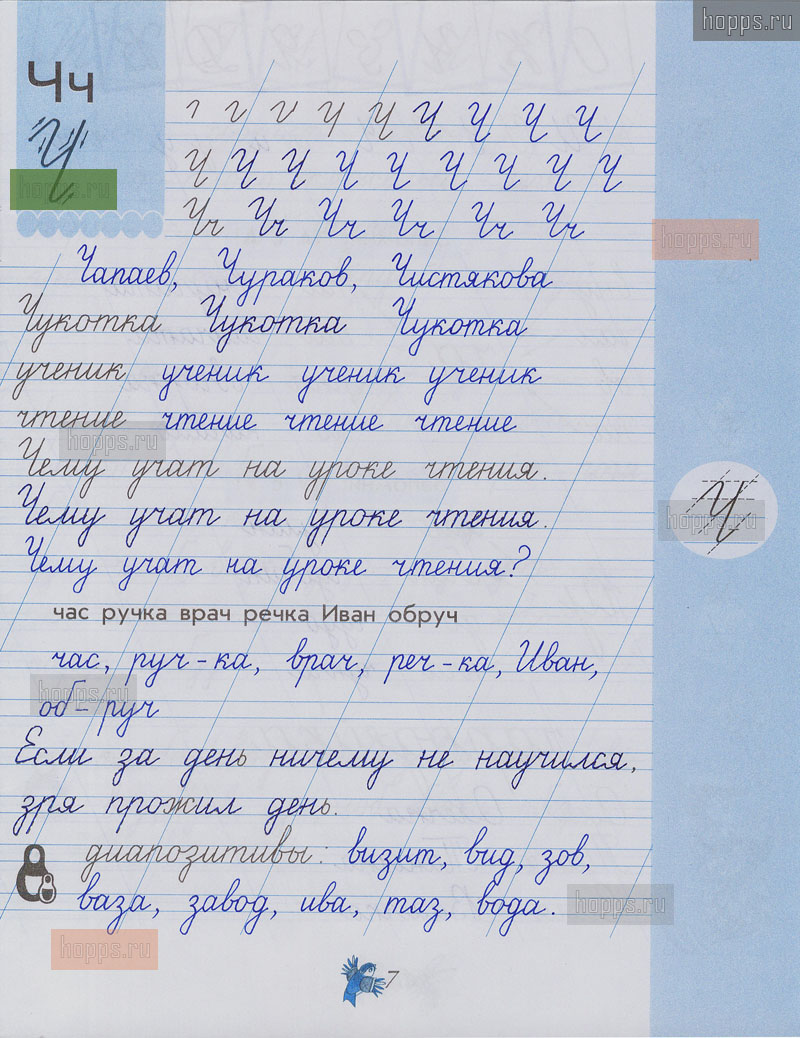 hopps.ru
Чч
Ч
hopps.ru
Ч Ч Ч Ч Ч
Ч Ч Ч Ч Ч Ч Ч Ч Ч
Чч Чч Чч Чч Чч Чч
hopps.ru
Чапаев, Чураков, Чистякова
Чукотка Чукотка Чукотка
ученик ученик ученик ученик
чтение чтение чтение чтение
hopps.ru
Чему учат на уроке чтения.
Чему учат на уроке чтения.
Ч
hopps.ru
Чему учат на уроке чтения?
час ручка врач речка Иван обруч
час, руч-ка, врач, реч-ка, Иван,
hopps.ru
об-руч
Если за день ничему не научился,
зря прожил день.
диапозитивы: визит, вид, зов,
ваза, завод, ива, таз, вода.
hopps.ru
hopps.ru
7